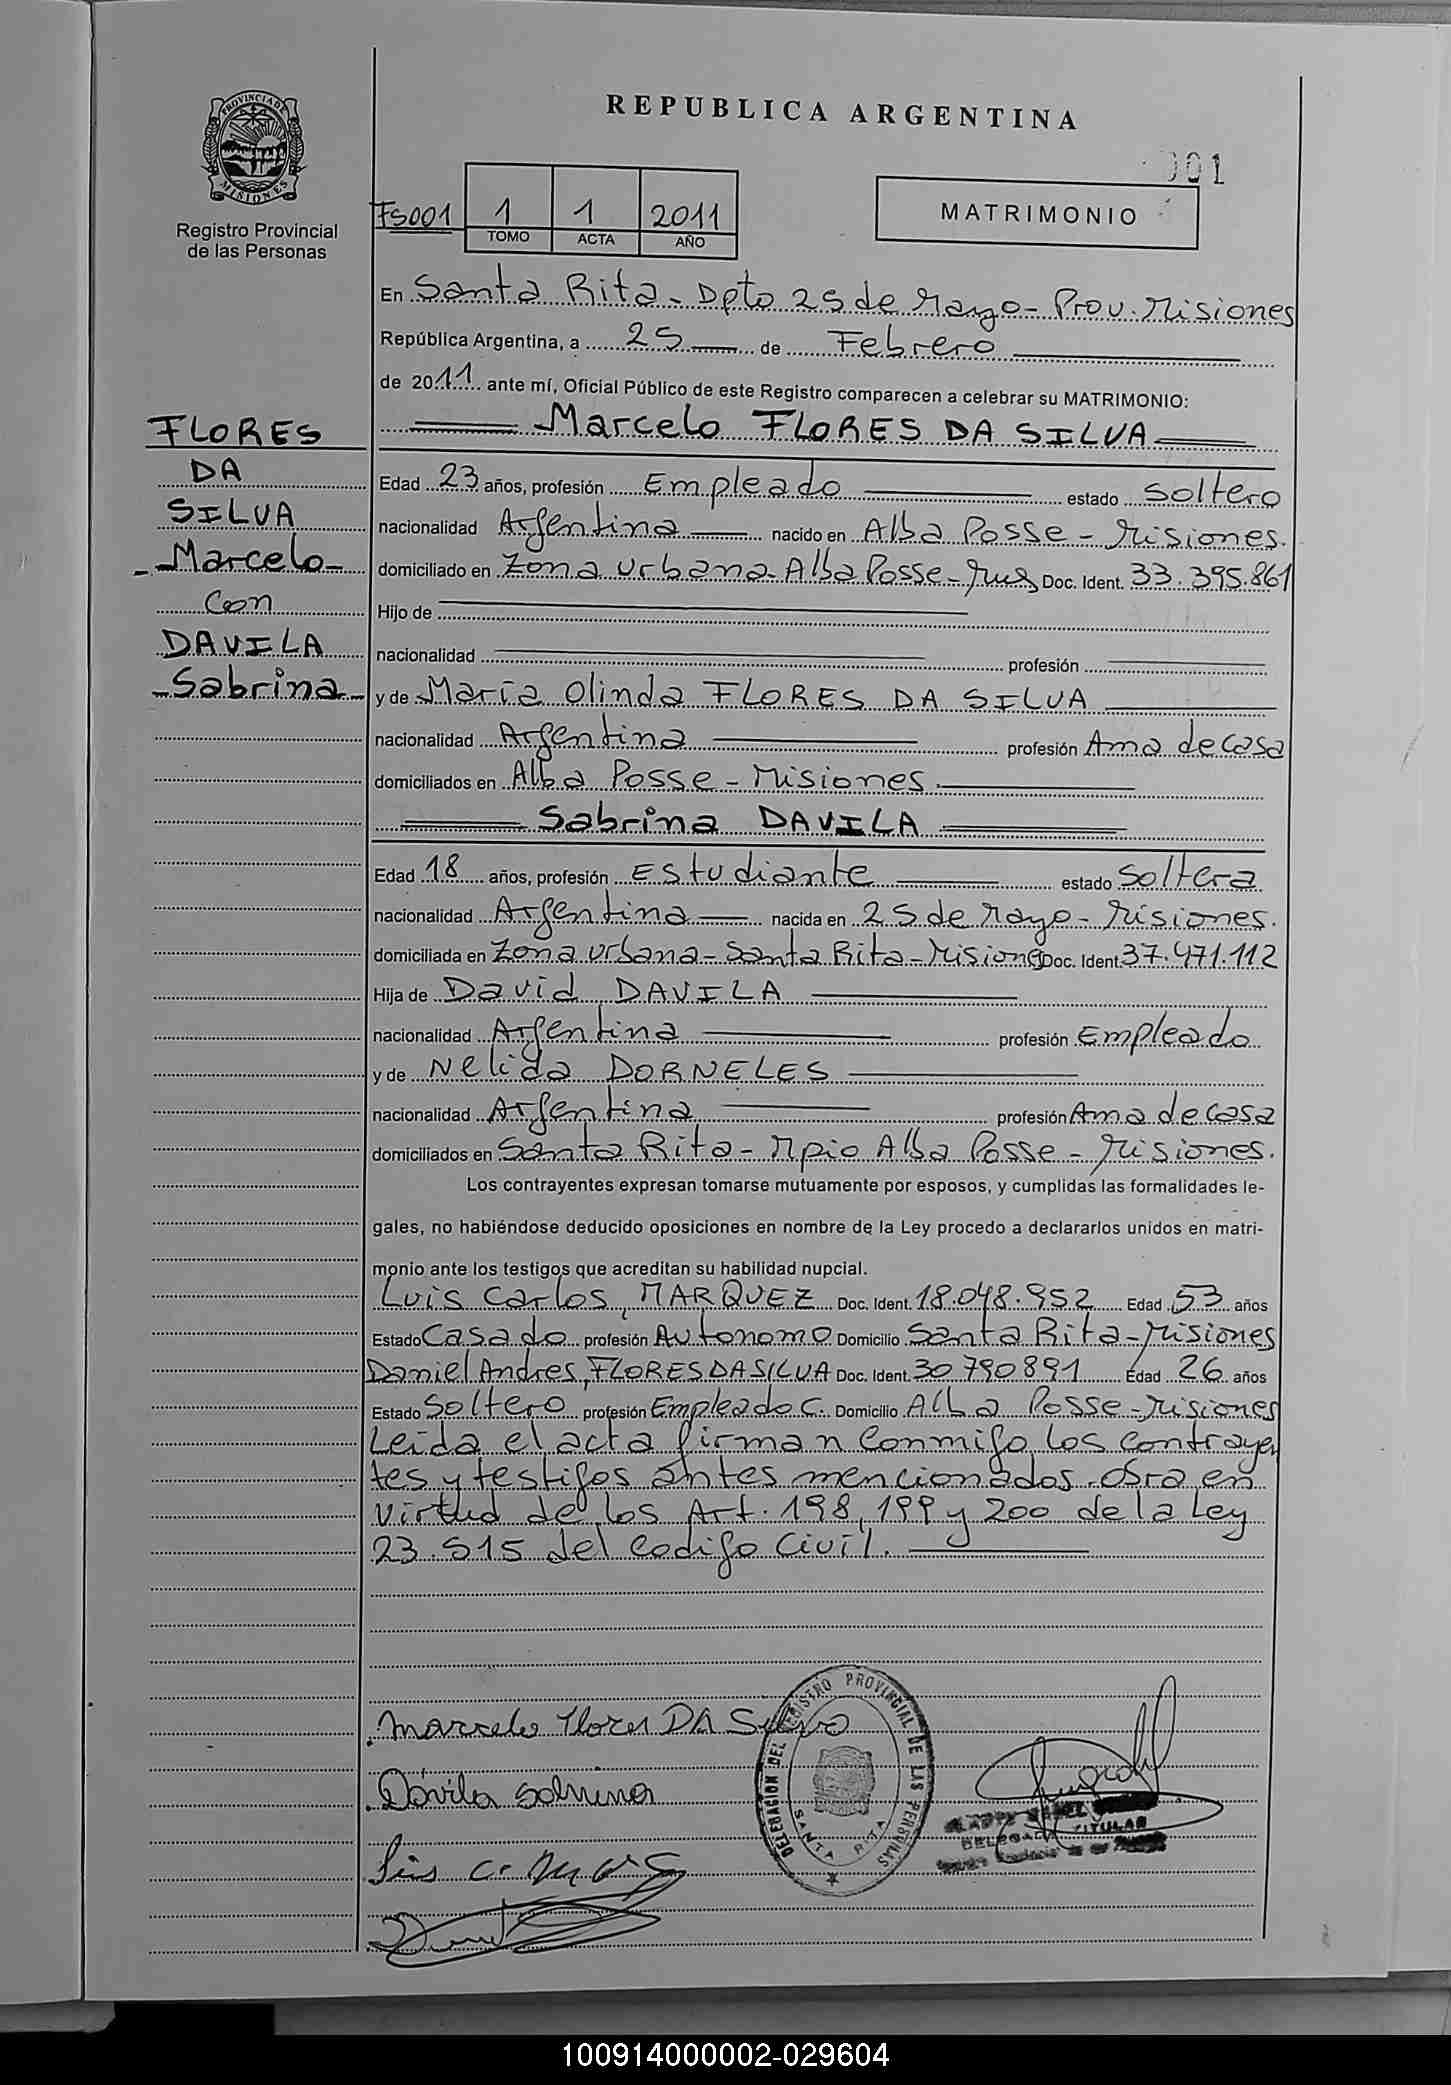 REPUBLICA ARGENTINA
PROVINCIA DE MISIONES
Registro Provincial
de las Personas
001
FS001 1 1 2011
TOMO ACTA AÑO
MATRIMONIO
En Santa Rita - Dpto 25 de Mayo - Prov. Misiones
República Argentina, a 25 de Febrero
de 2011 ante mí, Oficial Público de este Registro comparecen a celebrar su MATRIMONIO:
Marcelo FLORES DA SILVA
FLORES
DA
SILVA
Marcelo
Con
DAVILA
Sabrina
Edad 23 años, profesión Empleado estado Soltero
nacionalidad Argentina nacido en Alba Posse - Misiones.
domiciliado en Zona urbana - Alba Posse - Mnes Doc. Ident. 33.395.861
Hijo de
nacionalidad profesión
y de María Olinda FLORES DA SILVA
nacionalidad Argentina profesión Ama de casa
domiciliados en Alba Posse - Misiones.
Sabrina DAVILA
Edad 18 años, profesión Estudiante estado Soltera
nacionalidad Argentina nacida en 25 de Mayo - Misiones.
domiciliada en Zona urbana - Santa Rita - Misiones Doc. Ident. 37.471.112
Hija de David DAVILA
nacionalidad Argentina profesión Empleado
y de Nelida DORNELES
nacionalidad Argentina profesión Ama de casa
domiciliados en Santa Rita - Mpio Alba Posse - Misiones.
Los contrayentes expresan tomarse mutuamente por esposos, y cumplidas las formalidades le-
gales, no habiéndose deducido oposiciones en nombre de la Ley procedo a declararlos unidos en matri-
monio ante los testigos que acreditan su habilidad nupcial.
Luis Carlos, MARQUEZ Doc. Ident. 18.048.952 Edad 53 años
Estado Casado profesión Autonomo Domicilio Santa Rita - Misiones
Daniel Andres, FLORES DA SILVA Doc. Ident. 30790891 Edad 26 años
Estado Soltero profesión Empleado C. Domicilio Alba Posse - Misiones
Leida el acta firman conmigo los contrayen
tes y testigos antes mencionados. obra en
virtud de los Art. 198, 199 y 200 de la Ley
23.515 del Codigo Civil.
Marcelo Flores DA Silva
Dávila Sabrina
DELEGACION DEL REGISTRO PROVINCIAL DE LAS PERSONAS
SANTA RITA
TITULAR
100914000002-029604